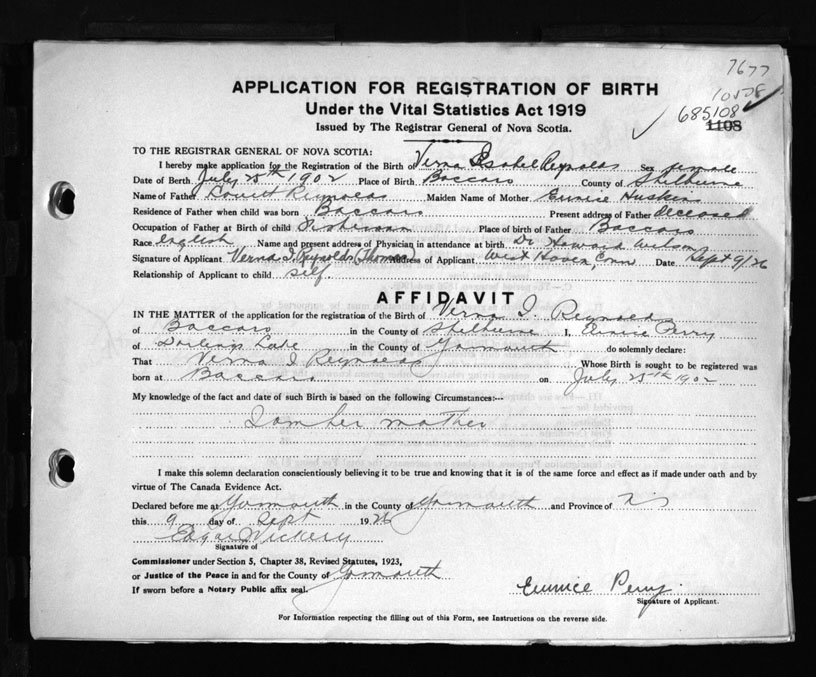 7677
10578
685108
1108
APPLICATION FOR REGISTRATION OF BIRTH
Under the Vital Statistics Act 1919
Issued by The Registrar General of Nova Scotia.
TO THE REGISTRAR GENERAL OF NOVA SCOTIA:
I hereby make application for the Registration of the Birth of Verna Isabel Reynolds Sex female
Date of Birth July 25th 1902 Place of Birth Baccaro County of Shelburne
Name of Father Lovitt Reynolds Maiden Name of Mother Eunice Huskins
Residence of Father when child was born Baccaro Present address of Father deceased
Occupation of Father at Birth of child Fisherman Place of birth of Father Baccaro
Race English Name and present address of Physician in attendance at birth Dr Howard Wilson
Signature of Applicant Verna I. Reynolds Thomas Address of Applicant West Haven, Conn Date Sept 9/26
Relationship of Applicant to child self.
AFFIDAVIT
IN THE MATTER of the application for the registration of the Birth of Verna I. Reynolds
of Baccaro in the County of Shelburne I, Eunice Perry
of Darlings Lake in the County of Yarmouth do solemnly declare:
That Verna I Reynolds Whose Birth is sought to be registered was
born at Baccaro on July 25th 1902
My knowledge of the fact and date of such Birth is based on the following Circumstances:--
I am her mother
I make this solemn declaration conscientiously believing it to be true and knowing that it is of the same force and effect as if made under oath and by
virtue of The Canada Evidence Act.
Declared before me at Yarmouth in the County of Yarmouth and Province of NS
this 9 day of Sept 1926
Edgar J Vickery
Signature of
Commissioner under Section 5, Chapter 38, Revised Statutes, 1923,
or Justice of the Peace in and for the County of Yarmouth
If sworn before a Notary Public affix seal.
Eunice Perry.
Signature of Applicant.
For Information respecting the filling out of this Form, see Instructions on the reverse side.